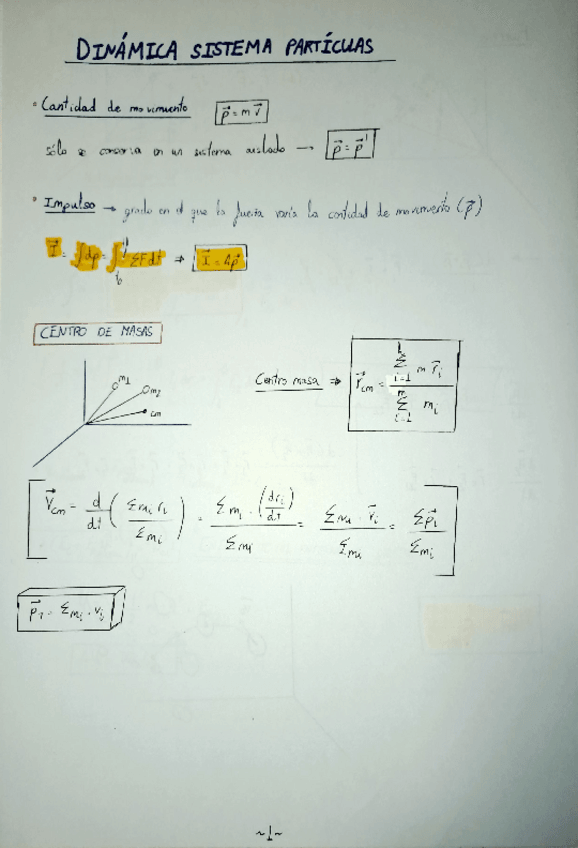 DINÁMICA SISTEMA PARTÍCULAS
• Cantidad de movimiento p⃗ = m v⃗
sólo se conserva en un sistema aislado → p⃗ = p⃗'
• Impulso → grado en el que la fuerza varía la cantidad de movimiento (p⃗)
I⃗ = ∫dp = ∫ ΣF dt ⇒ I⃗ = Δp⃗
t₀
CENTRO DE MASAS
m1
m2
cm
Centro masa ⇒ r⃗cm = Σ i=1 m r⃗i / Σ i=1 mi
V⃗cm = d/dt ( Σmi ri / Σmi ) = Σmi · (dri/dt) / Σmi = Σmi · v⃗i / Σmi = Σp⃗i / Σmi
p⃗T = Σmi · vi
~1~